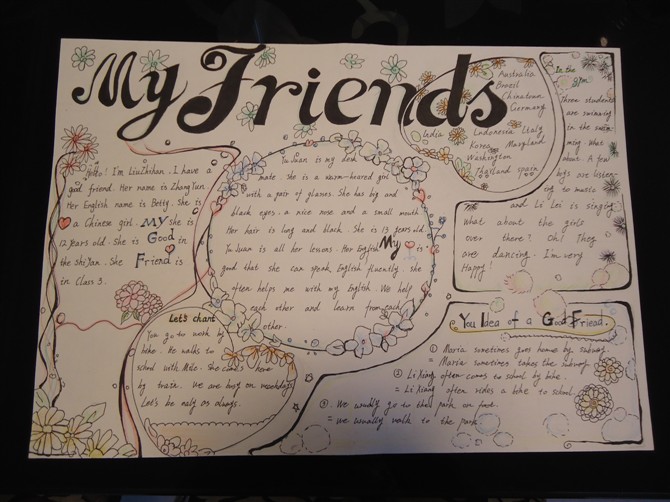 My Friends
Hello! I'm LiuZhihan. I have a
good friend. Her name is ZhangYun.
Her English name is Betty. She is
a Chinese girl. She is
12 years old. She is in
the ShiYan. She is
in Class 3.
My
Good
Friend
YuJuan is my desk
mate. She is a warm-heared girl
with a pair of glasses. She has big and
black eyes. a nice nose and a small mouth
Her hair is lung and black. She is 13 years old.
YuJuan is all her lessons. Her English is
good that she can speak English fluently. she
often helps me with my English. We help
each other and learn from each
other.
My
Australia
Brazil
Chinatown
Germany
India Indonesia Italy
Korea Maryland
Washington
Thailand spain
In the
gym
Three students
are swimming
in the swim-
ming. What
about. A few
boys are listen-
ing to music
and Li Lei is singing
what about the girls
over there? Oh! They
are dancing. I'm very
Happy!
Let's chant
You go to work by
bike. He walks to
school with Mike. She comes here
by train. We are busy on weekdays
Let's be early as always.
You Idea of a Good Friend.
① Maria sometimes goes home by subway.
Maria sometimes takes the subway.
② Li Xing often comes to school by bike.
= Li Xing often rides a bike to school.
③ We usually go to the park on foot.
= we usually walk to the park.